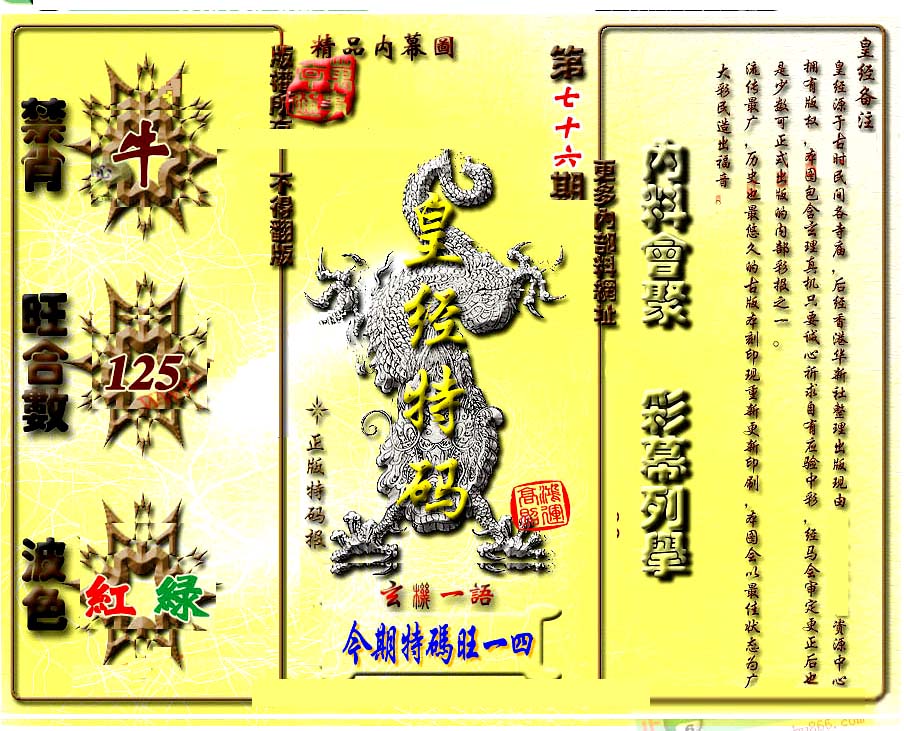 精品内幕圖
版權所有
不得翻版
第七十六期
更多内部料網址
禁肖
牛
旺合數
125
波色
紅 綠
皇经特码
正版特码报
鴻運高照
玄機一語
今期特碼旺一四
内料會聚
彩幕列舉
皇经备注
皇经源于古时民间各寺庙,后经香港华新社整理出版现由 资源中心
拥有版权,本图包含玄理真机只要诚心祈求自有应验中彩,经马会审定更正后也
是少数可正式出版的内部彩报之一。
流传最广,历史也最悠久的古版本刻印现重新更新印刷,本图会以最佳状态为广
大彩民造出福音